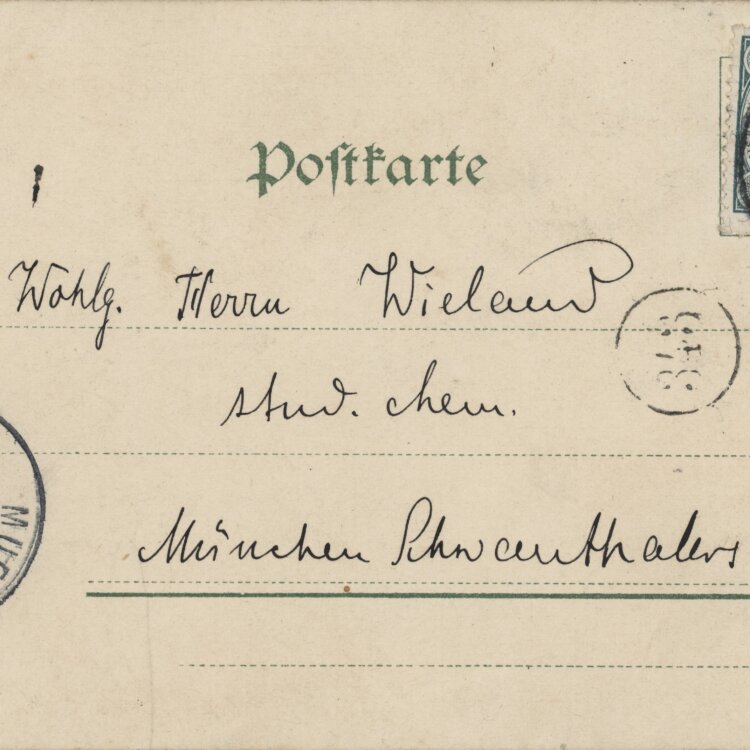 Postkarte
Wohlg. Herrn Wieland
stud. chem.
München Schwanthalers